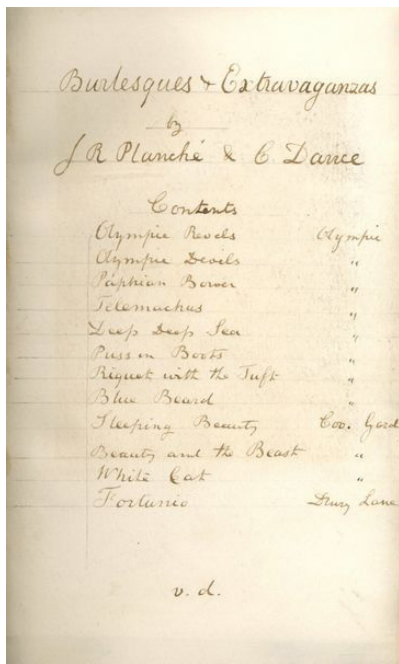 Burlesques & Extravaganzas
by
J R Planché & C Dance
Contents
Olympic Revels Olympic
Olympic Devils "
Paphian Bower "
Telemachus "
Deep Deep Sea "
Puss in Boots "
Riquet with the Tuft "
Blue Beard "
Sleeping Beauty Cov. Gard
Beauty and the Beast "
White Cat "
Fortunio Drury Lane
v. d.